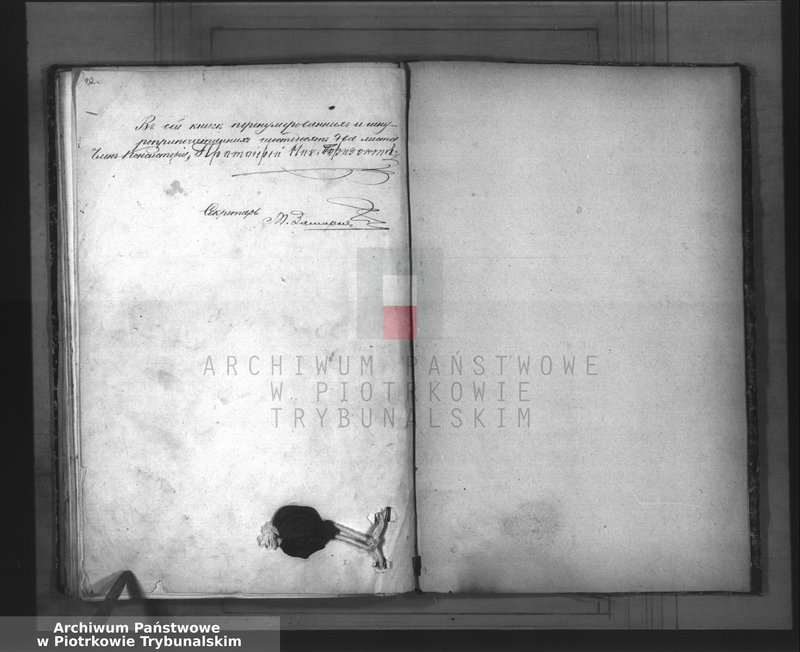 Въ сей книгѣ перенумерованныхъ и шну-
роприпечатанныхъ шестьдесятъ два листа
Членъ Консисторіи, Протоіерей
Секретарь
ARCHIWUM PAŃSTWOWE
W PIOTRKOWIE
TRYBUNALSKIM
Archiwum Państwowe
w Piotrkowie Trybunalskim